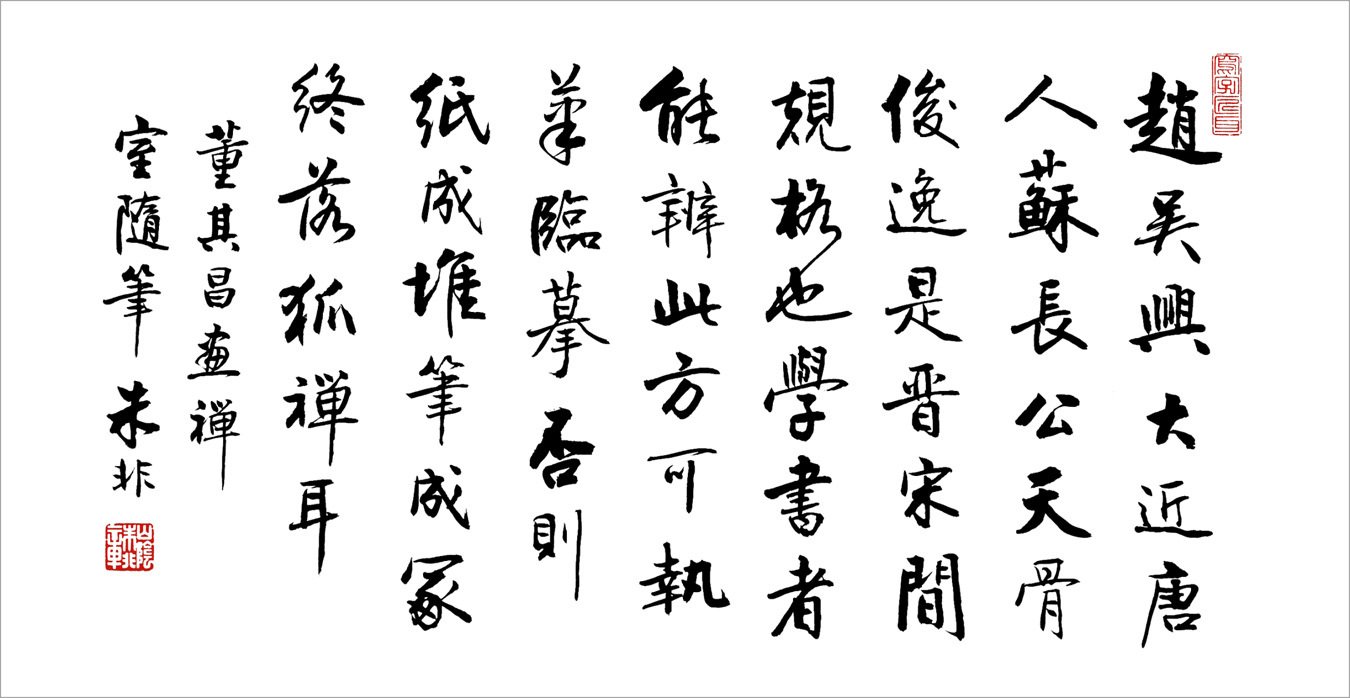 趙吳興大近唐
人蘇長公天骨
俊逸是晉宋間
規格也學書者
能辨此方可執
筆臨摹否則
紙成堆筆成冢
終落狐禪耳
董其昌畫禪
室隨筆 朱非